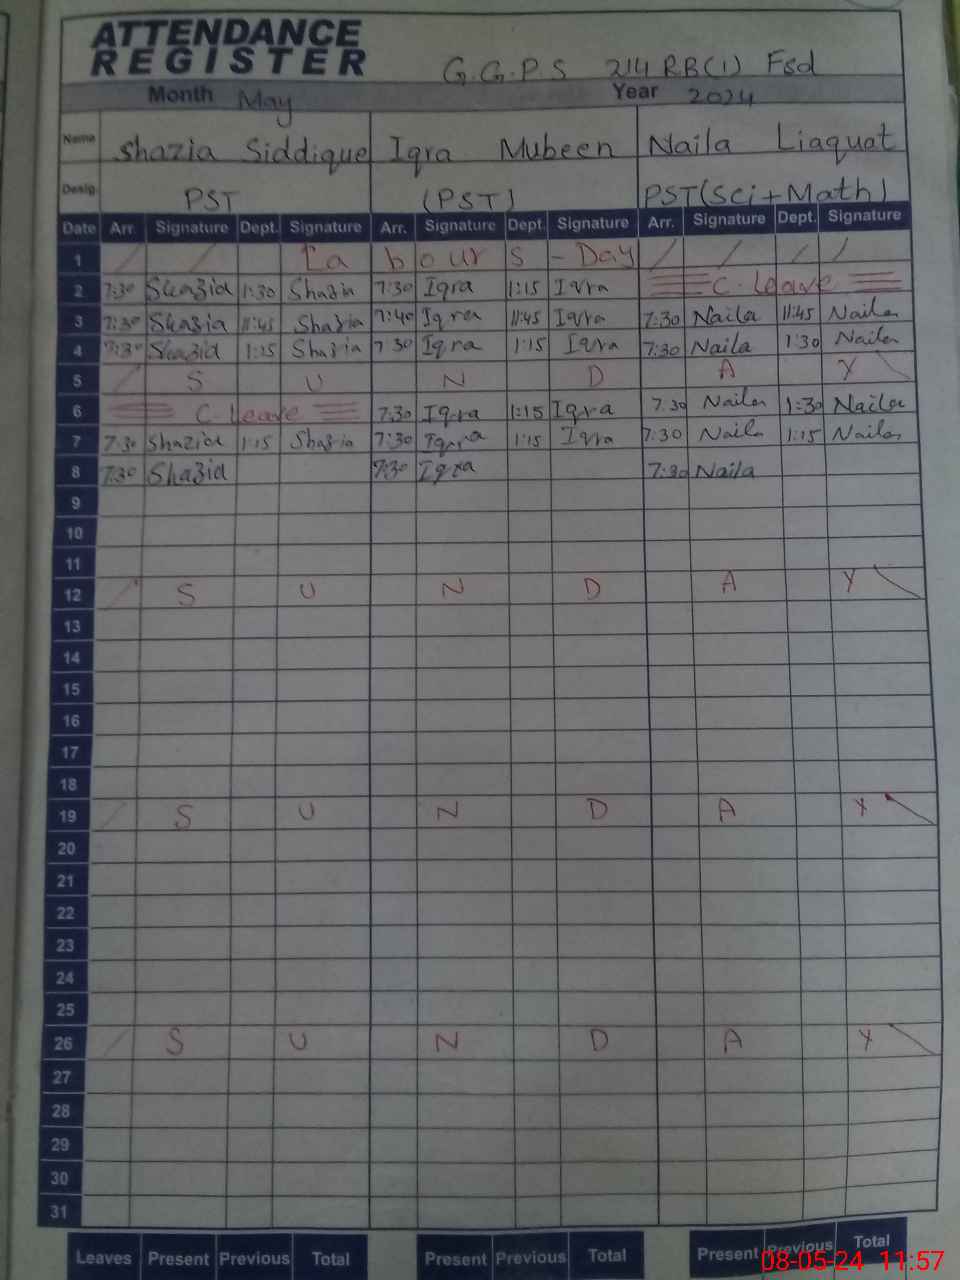 ATTENDANCE
REGISTER
G.G.P.S 214 RB(1) Fsd
Month May Year 2024
Name Shazia Siddique Iqra Mubeen Naila Liaquat
Desig. PST (PST) PST(Sci+Math)
Date Arr. Signature Dept. Signature Arr. Signature Dept. Signature Arr. Signature Dept. Signature
1 La b our s - Day
2 7:30 Shazia 1:30 Shazia 7:30 Iqra 1:15 Iqra C. leave
3 7:30 Shazia 11:45 Shazia 7:40 Iqra 11:45 Iqra 7:30 Naila 11:45 Naila
4 7:30 Shazia 1:15 Shazia 7:30 Iqra 1:15 Iqra 7:30 Naila 1:30 Naila
5 S U N D A Y
6 C. leave 7:30 Iqra 1:15 Iqra 7:30 Naila 1:30 Naila
7 7:30 Shazia 1:15 Shazia 7:30 Iqra 1:15 Iqra 7:30 Naila 1:15 Naila
8 7:30 Shazia 7:30 Iqra 7:30 Naila
9
10
11
12 S U N D A Y
13
14
15
16
17
18
19 S U N D A Y
20
21
22
23
24
25
26 S U N D A Y
27
28
29
30
31
Leaves Present Previous Total Present Previous Total Present Previous Total
08-05-24 11:57